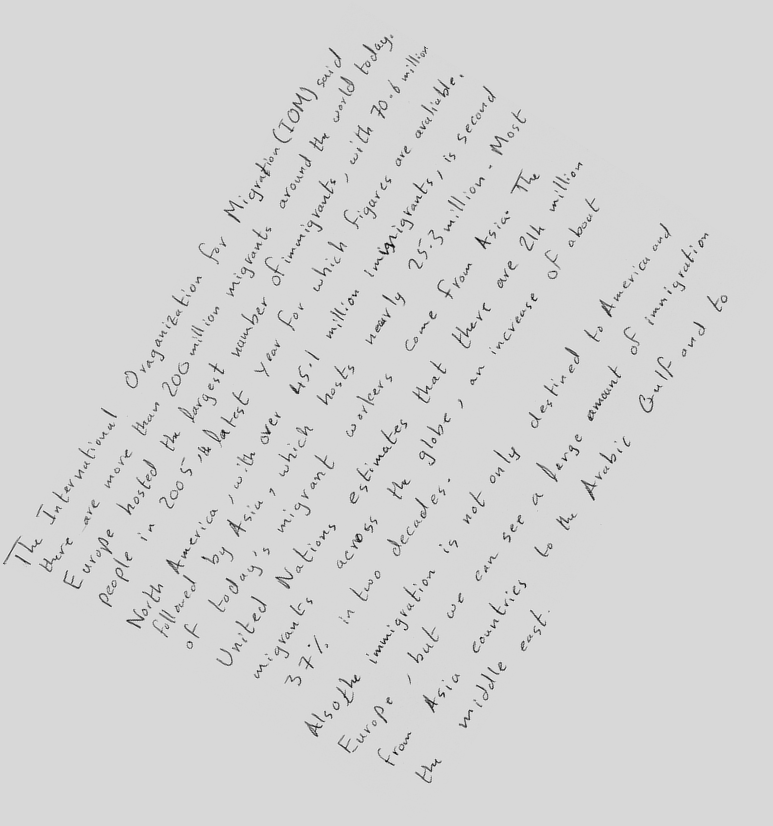 The International Oraganization for Migration (IOM) said
there are more than 200 million migrants around the world today.
Europe hosted the largest number of immigrants, with 70.6 million
people in 2005, the latest year for which figures are avaliable.
North America, with over 45.1 million immigrants, is second
followed by Asia, which hosts nearly 25.3 million. Most
of today's migrant workers come from Asia. The
United Nations estimates that there are 214 million
migrants across the globe, an increase of about
37% in two decades.
Also the immigration is not only destined to America and
Europe, but we can see a large amount of immigration
from Asia countries to the Arabic Gulf and to
the middle east.